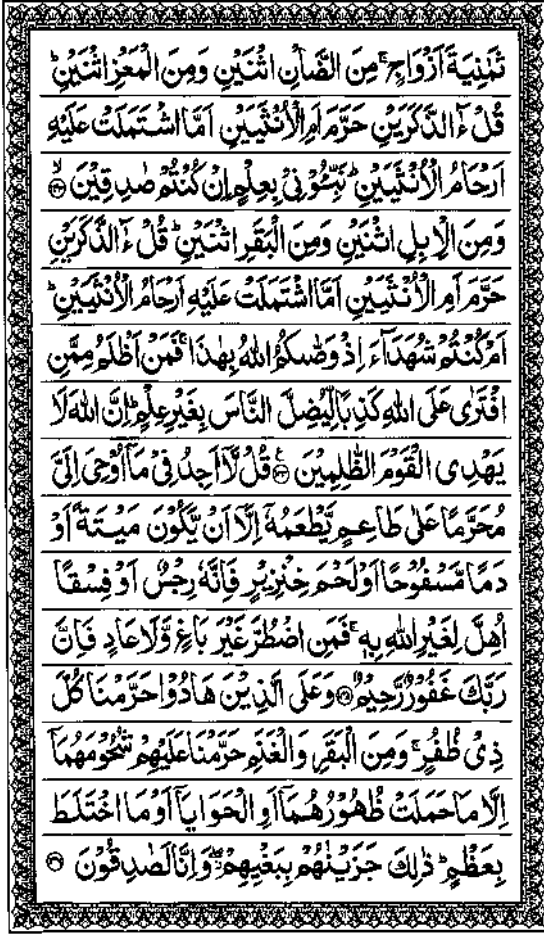 ثَمٰنِيَةَ اَزْوَاجٍ ۚ مِنَ الضَّاْنِ اثْنَيْنِ وَمِنَ الْمَعْزِ اثْنَيْنِ ؕ
قُلْ ءٰٓالذَّكَرَيْنِ حَرَّمَ اَمِ الْاُنْثَيَيْنِ اَمَّا اشْتَمَلَتْ عَلَيْهِ
اَرْحَامُ الْاُنْثَيَيْنِ ؕ نَبِّـُٔوْنِيْ بِعِلْمٍ اِنْ كُنْتُمْ صٰدِقِيْنَ ۙ﴿۱۴۳﴾
وَمِنَ الْاِبِلِ اثْنَيْنِ وَمِنَ الْبَقَرِ اثْنَيْنِ ؕ قُلْ ءٰٓالذَّكَرَيْنِ
حَرَّمَ اَمِ الْاُنْثَيَيْنِ اَمَّا اشْتَمَلَتْ عَلَيْهِ اَرْحَامُ الْاُنْثَيَيْنِ ؕ
اَمْ كُنْتُمْ شُهَدَآءَ اِذْ وَصّٰىكُمُ اللّٰهُ بِهٰذَا ۚ فَمَنْ اَظْلَمُ مِمَّنِ
افْتَرٰى عَلَى اللّٰهِ كَذِبًا لِّيُضِلَّ النَّاسَ بِغَيْرِ عِلْمٍ ؕ اِنَّ اللّٰهَ لَا
يَهْدِى الْقَوْمَ الظّٰلِمِيْنَ ﴿۱۴۴﴾ ع قُلْ لَّاۤ اَجِدُ فِيْ مَاۤ اُوْحِيَ اِلَيَّ
مُحَرَّمًا عَلٰى طَاعِمٍ يَّطْعَمُهٗۤ اِلَّاۤ اَنْ يَّكُوْنَ مَيْتَةً اَوْ
دَمًا مَّسْفُوْحًا اَوْ لَحْمَ خِنْزِيْرٍ فَاِنَّهٗ رِجْسٌ اَوْ فِسْقًا
اُهِلَّ لِغَيْرِ اللّٰهِ بِهٖ ۚ فَمَنِ اضْطُرَّ غَيْرَ بَاغٍ وَّلَا عَادٍ فَاِنَّ
رَبَّكَ غَفُوْرٌ رَّحِيْمٌ ﴿۱۴۵﴾ وَعَلَى الَّذِيْنَ هَادُوْا حَرَّمْنَا كُلَّ
ذِيْ ظُفُرٍ ۚ وَمِنَ الْبَقَرِ وَالْغَنَمِ حَرَّمْنَا عَلَيْهِمْ شُحُوْمَهُمَاۤ
اِلَّا مَا حَمَلَتْ ظُهُوْرُهُمَاۤ اَوِ الْحَوَايَاۤ اَوْ مَا اخْتَلَطَ
بِعَظْمٍ ؕ ذٰلِكَ جَزَيْنٰهُمْ بِبَغْيِهِمْ ۖ وَاِنَّا لَصٰدِقُوْنَ ﴿۱۴۶﴾